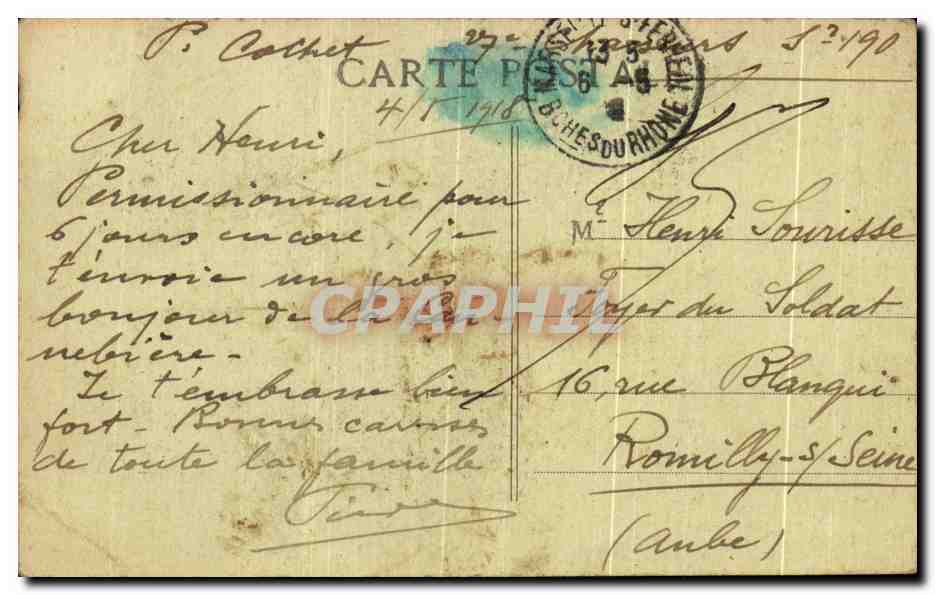 P. Cochet 27e Chasseurs Sr 190
CARTE POSTALE
MARSEILLE ST FERREOL
13 5
6 5
BCHES DU RHONE
4/5 1918
Cher Henri,
Permissionnaire pour
6 jours encore, je
t'envoie un gros
bonjour de la Can-
nebière -
Je t'embrasse bien
fort - Bonnes caresses
de toute la famille
Mr Henri Sourisse
Foyer du Soldat
16, rue Blanqui
Romilly-s/Seine
(Aube)
CPAPHIL